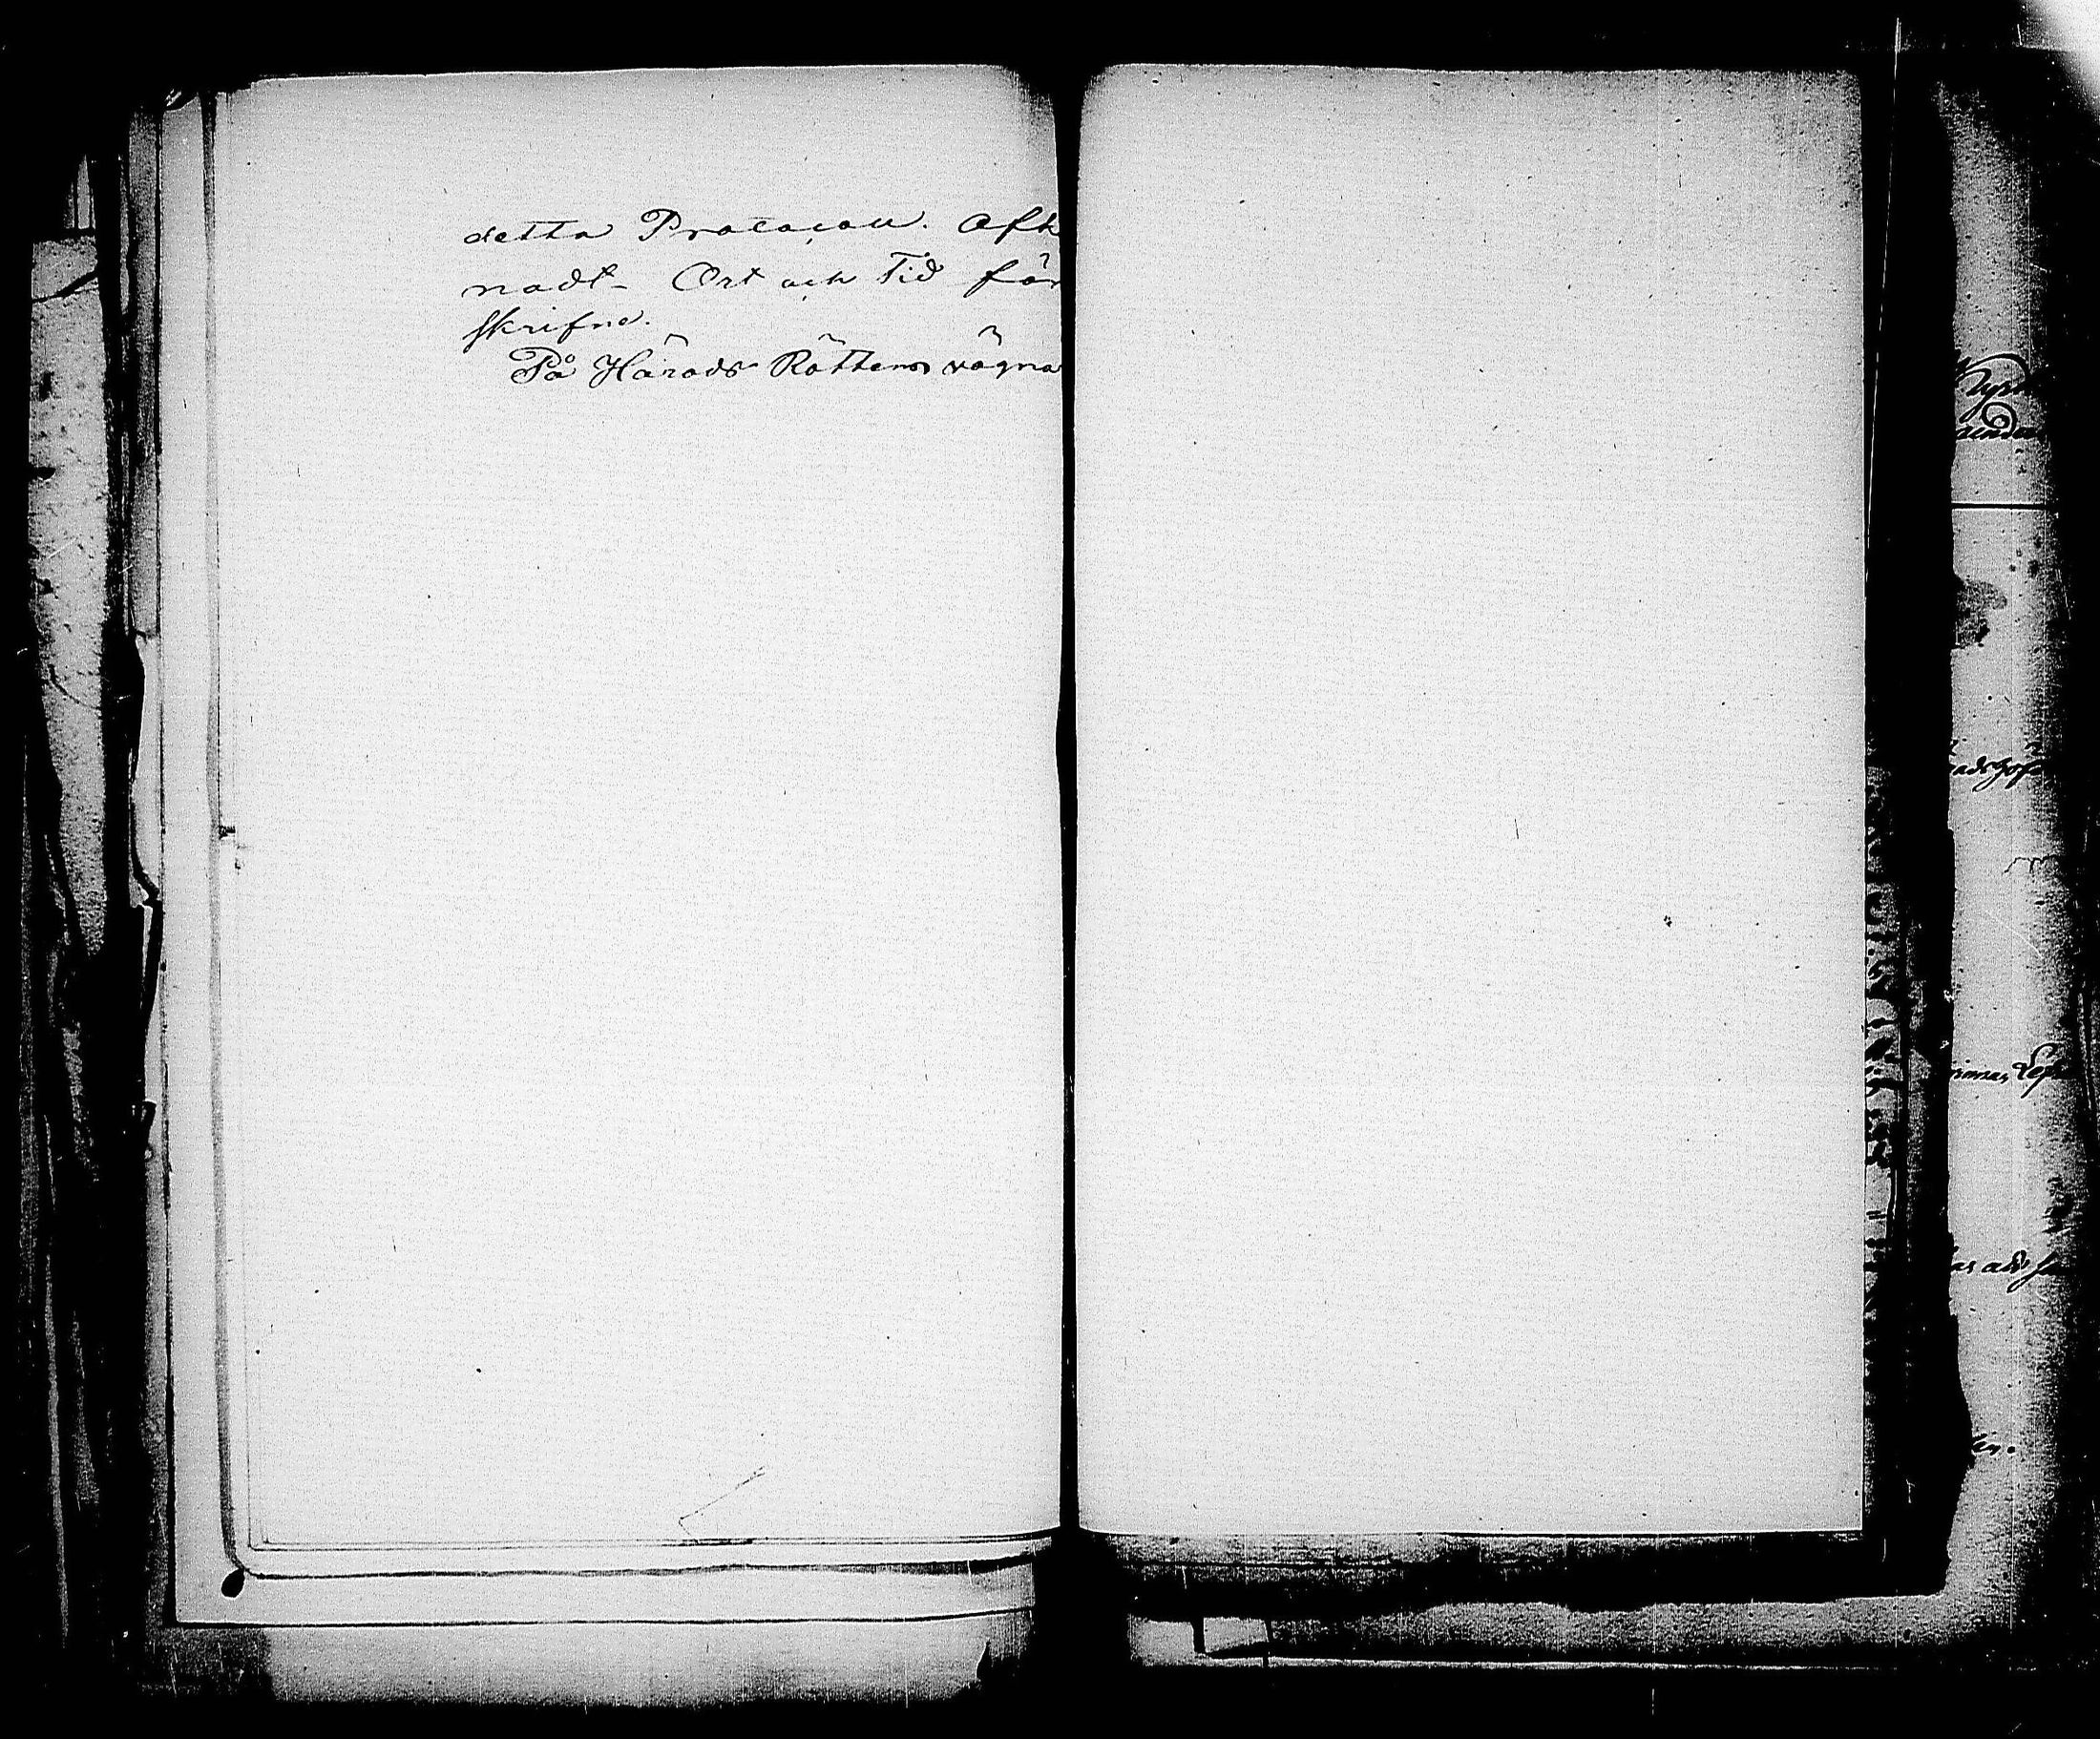 detta Protocoll. Afk
nadt Ort och Tid för
skrifne.
På Härads Rättens vägna